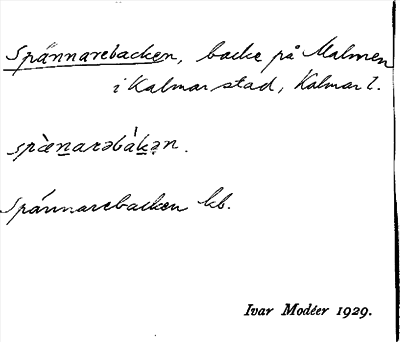 Spännarebacken, backe på Malmen
i Kalmar stad, Kalmar l.
spæ̀narəbák̠ən.
Spännarebacken kb.
Ivar Modéer 1929.